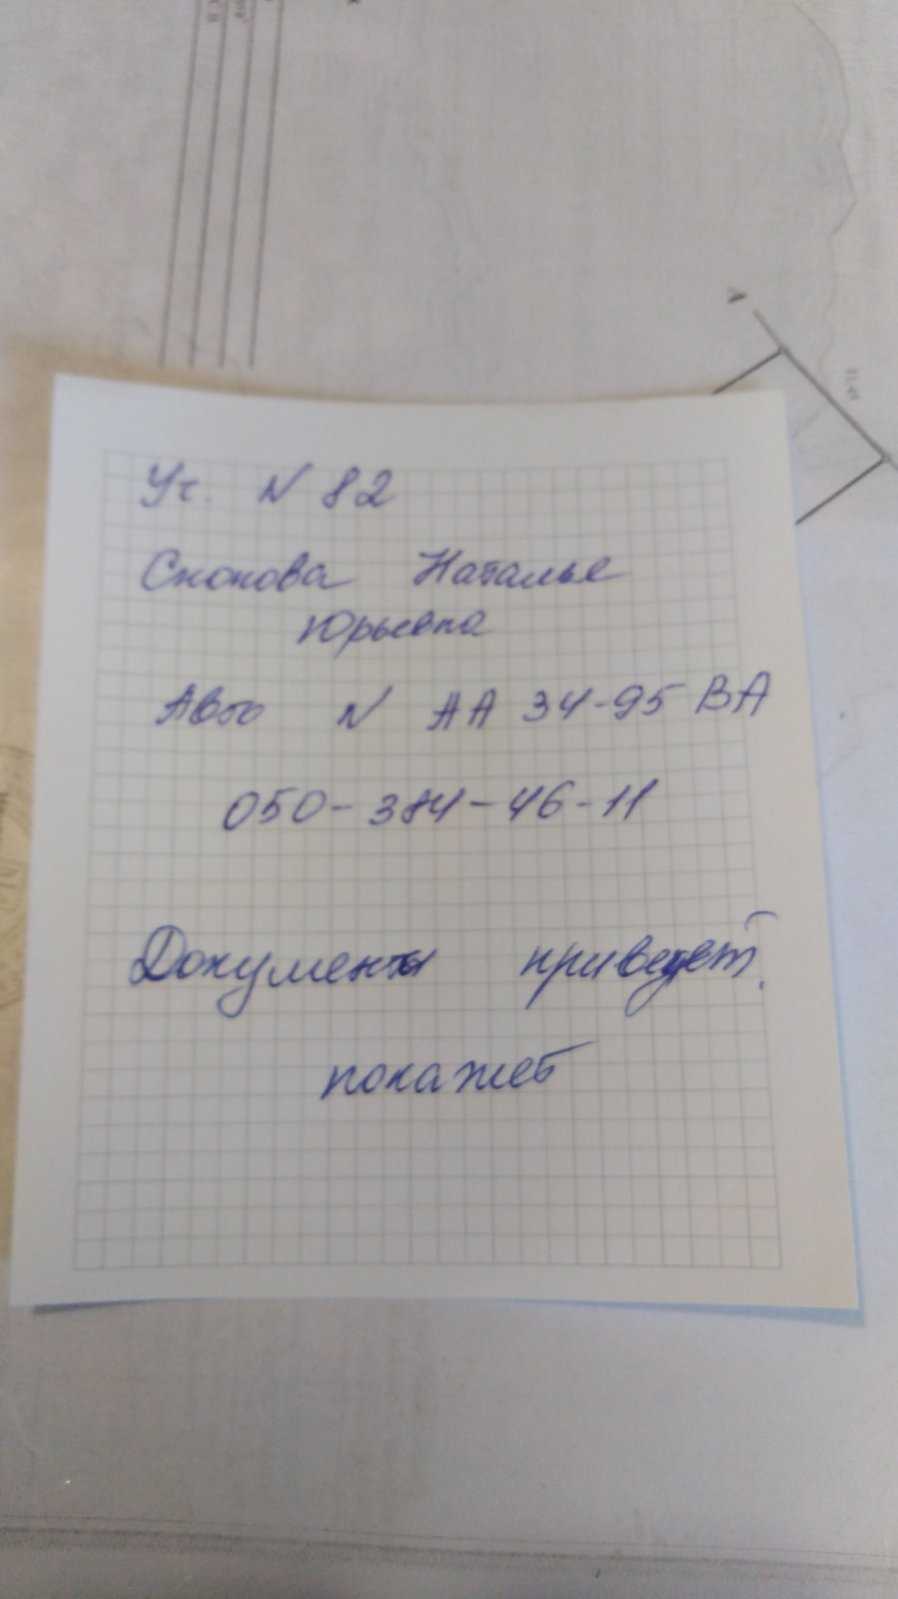 Уч. N 82
Наталье
Юрьевна
Авто N АА 34-95 ВА
050-384-46-11
Документы привезет,
покажет